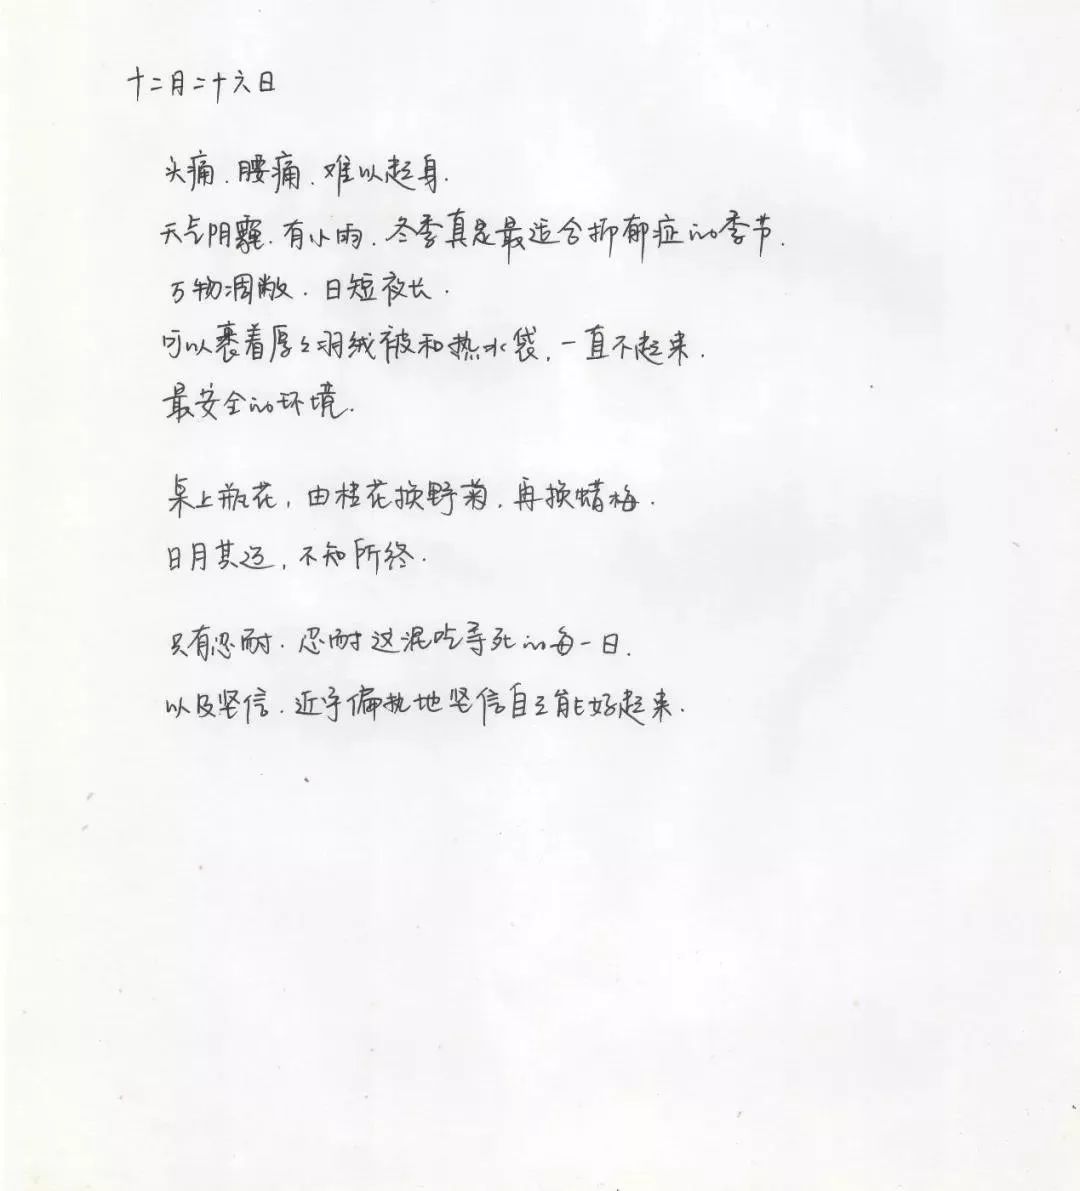 十二月二十六日
头痛、腰痛、难以起身.
天气阴霾.有小雨.冬季真是最适合抑郁症的季节.
万物凋敝.日短夜长.
可以裹着厚々羽绒被和热水袋,一直不起来.
最安全的环境.
桌上瓶花,由桂花换野菊,再换蜡梅.
日月其迈,不知所终.
只有忍耐.忍耐这混吃等死的每一日.
以及坚信.近乎偏执地坚信自己能好起来.